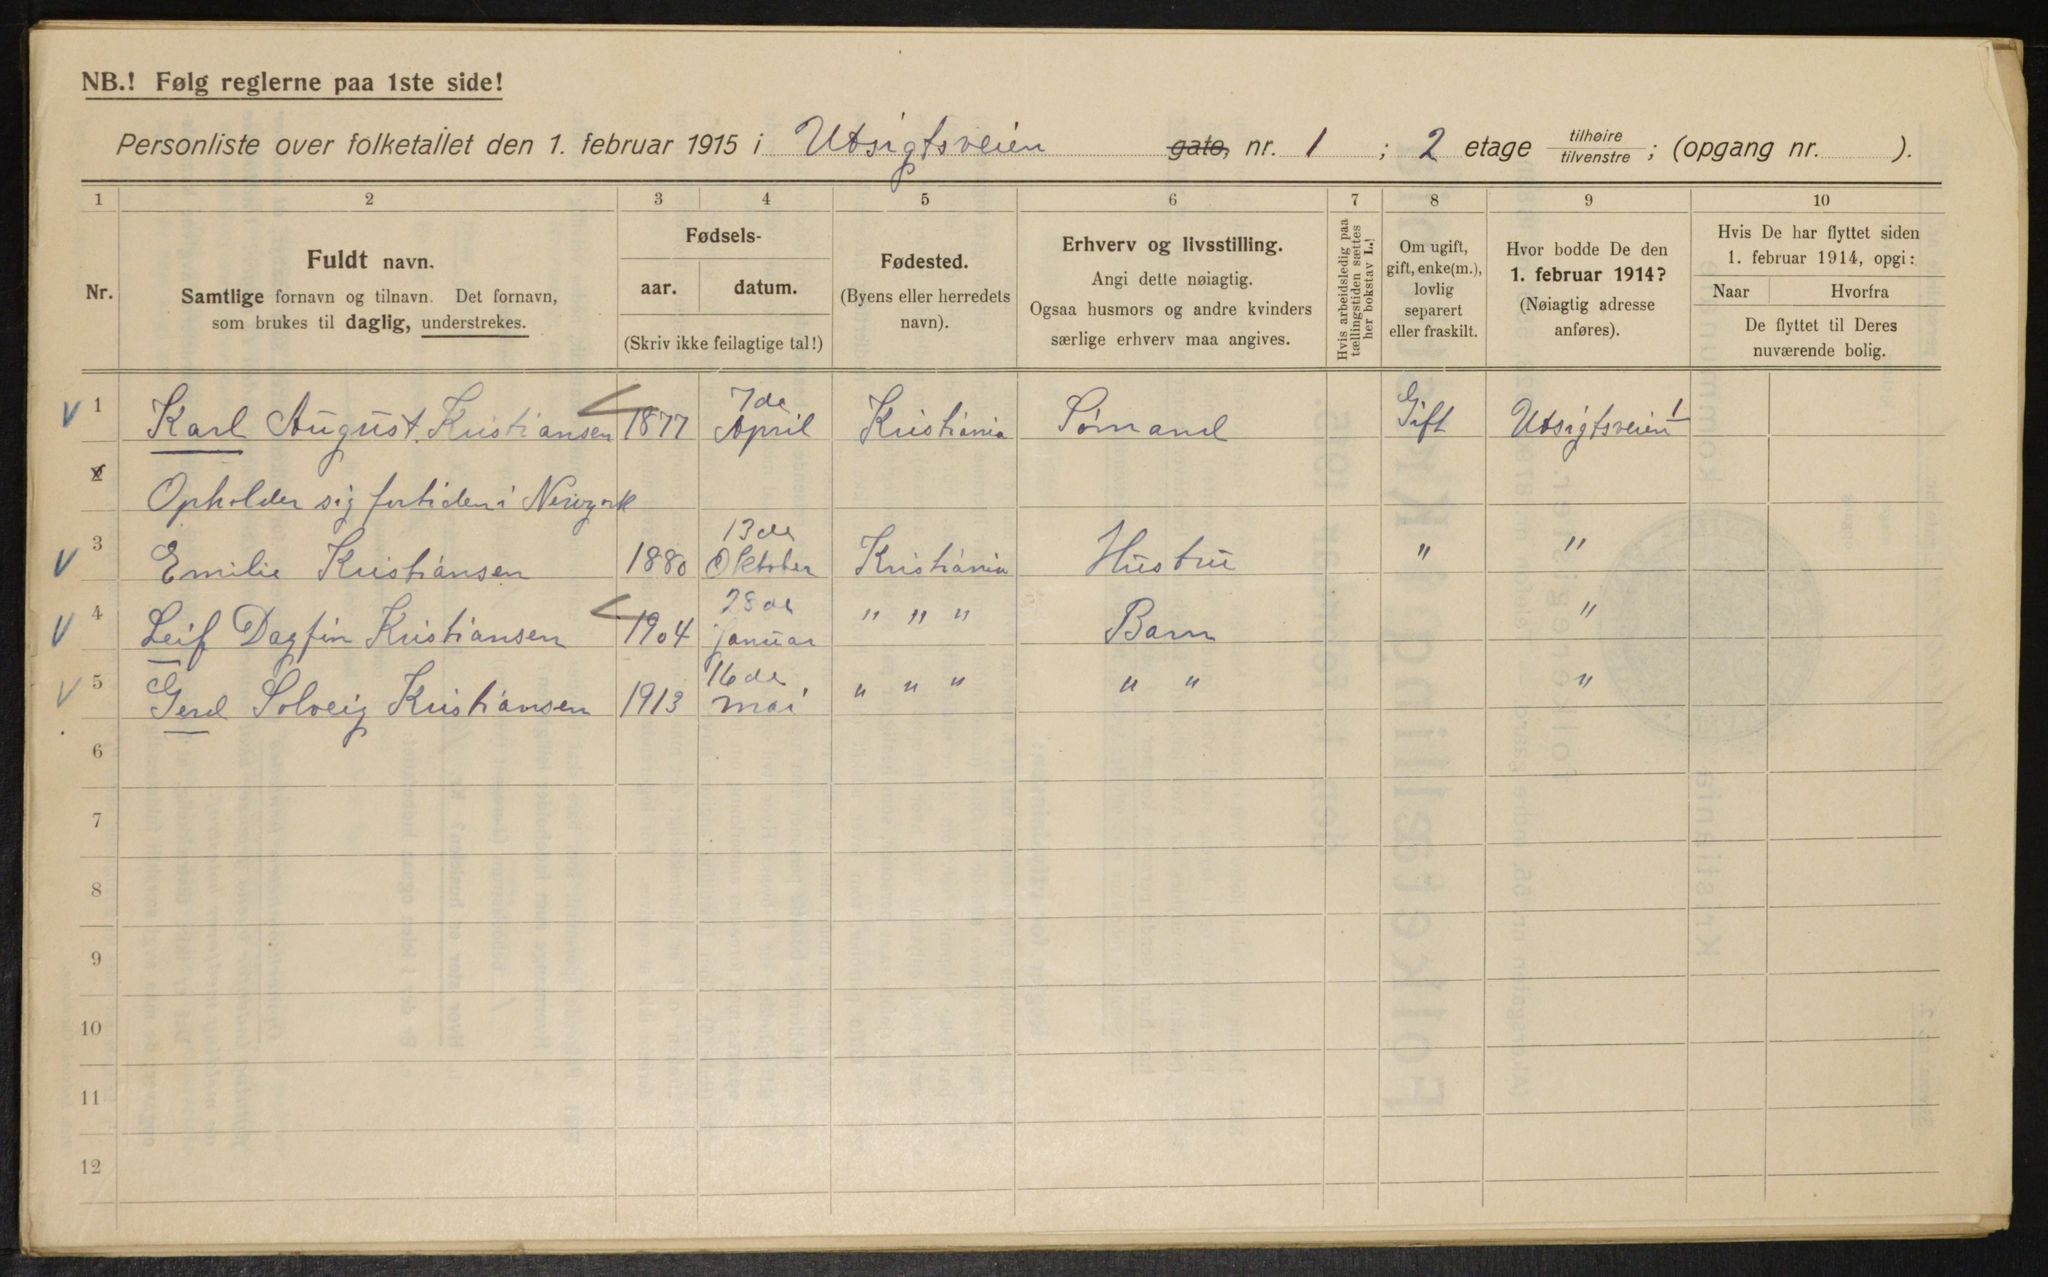 NB.! Følg reglerne paa 1ste side!
Personliste over folketallet den 1. februar 1915 i Utsigtsveien gate, nr. 1 ; 2 etage tilhøire tilvenstre ; (opgang nr. ).
1 2 3 4 5 6 7 8 9 10
Nr.
Fuldt navn.
Samtlige fornavn og tilnavn. Det fornavn,
som brukes til daglig, understrekes.
Fødsels-
aar. datum.
(Skriv ikke feilagtige tal!)
Fødested.
(Byens eller herredets
navn).
Erhverv og livsstilling.
Angi dette nøiagtig.
Ogsaa husmors og andre kvinders
særlige erhverv maa angives.
Hvis arbeidsledig paa
tællingstiden sættes
her bokstav L.!
Om ugift,
gift, enke(m.),
lovlig
separert
eller fraskilt.
Hvor bodde De den
1. februar 1914?
(Nøiagtig adresse
anføres).
Hvis De har flyttet siden
1. februar 1914, opgi:
Naar Hvorfra
De flyttet til Deres
nuværende bolig.
V 1 Karl August Kristiansen 1877 7de April Kristiania Sømand Gift Utsigtsveien 1
2 Opholder sig fortiden i Newyork
V 3 Emilie Kristiansen 1880 13de Oktober Kristiania Hustru " "
V 4 Leif Dagfin Kristiansen 1904 28de januar " " " Barn "
V 5 Gerd Solveig Kristiansen 1913 16de mai " " " " " "
6
7
8
9
10
11
12